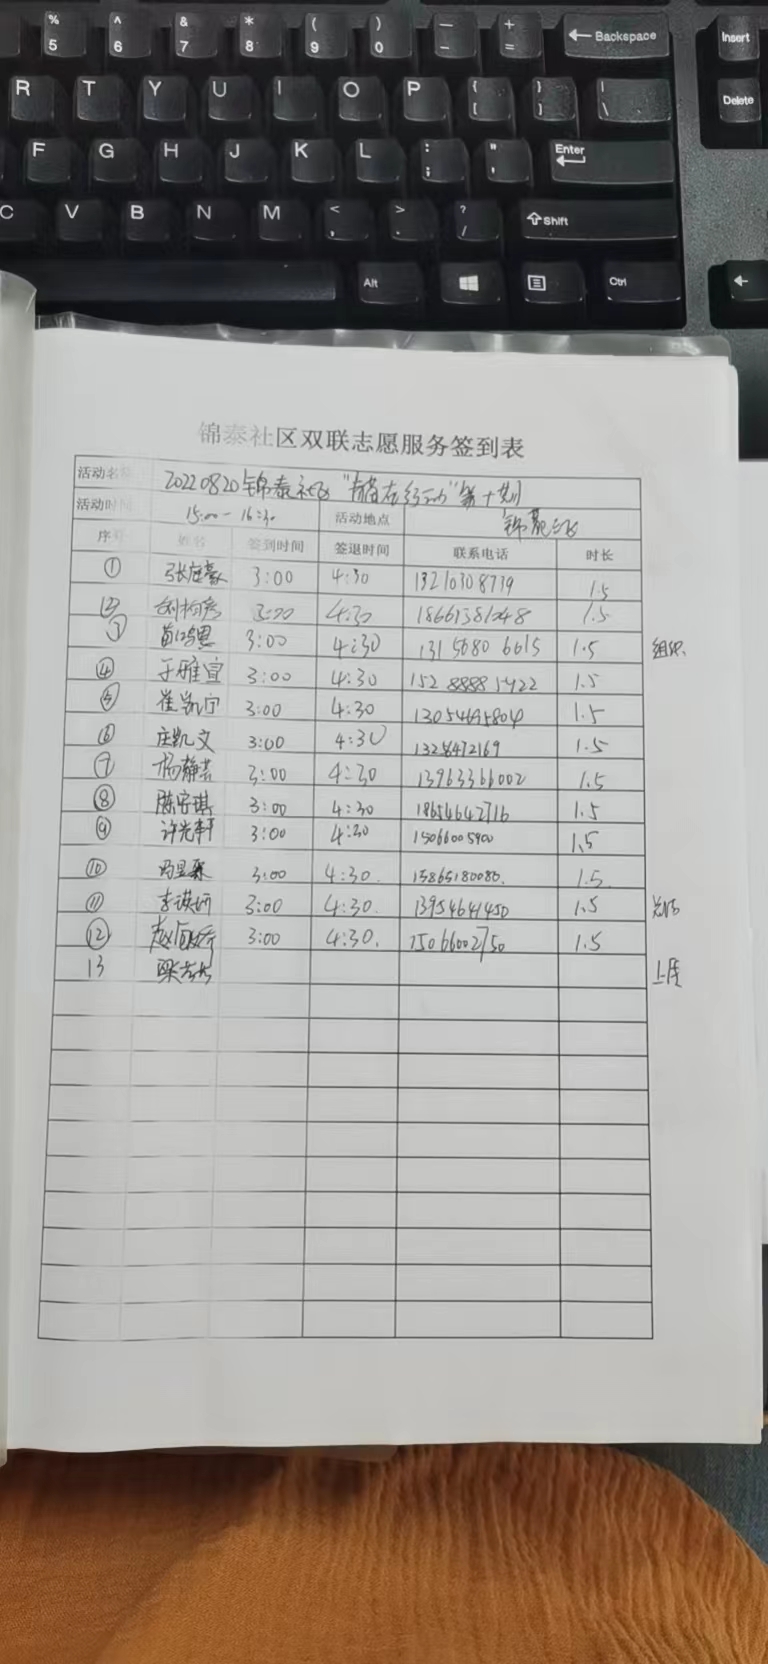 % 5 ^ 6 & 7 * 8 ( 9 ) 0 — - + = ← Backspace Insert
R T Y U I O P { [ } ] | \ Delete
F G H J K L : ; " ' Enter
C V B N M < , > . ? / Shift
Alt Ctrl
锦泰社区双联志愿服务签到表
活动名称 20220820锦泰社区 第十期
活动时间 15:00-16:30 活动地点
序号 姓名 签到时间 签退时间 联系电话 时长
① 3:00 4:30 13210308739 1.5
② 3:00 4:30 18661381048 1.5
3 3:00 4:30 131 5680 6615 1.5 组织
④ 于雅宣 3:00 4:30 152 8888 1.5
⑤ 崔凯宁 3:00 4:30 13054695804 1.5
⑥ 庄凯文 3:00 4:30 1328472169 1.5
⑦ 杨静芸 3:00 4:30 13963366002 1.5
⑧ 陈宇琪 3:00 4:30 18654642716 1.5
⑨ 许光轩 3:00 4:30 15066005900 1.5
⑩ 3:00 4:30. 15865180080. 1.5
⑪ 李瑛妍 3:00 4:30. 13954641450 1.5 总结
⑫ 3:00 4:30. 15066002750 1.5
13